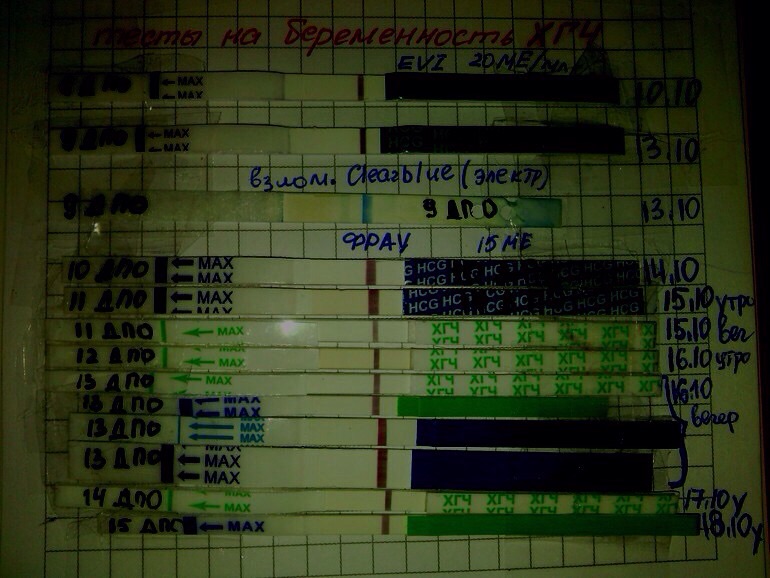 тесты на беременность ХГЧ
EVI 20 МЕ/мл
ДПО ← MAX 10.10
← MAX
9 ДПО ← MAX 13.10
← MAX
взлом. Clearblue (электр)
9 ДПО 9 ДПО 13.10
ФРАУ 15 МЕ
10 ДПО ← MAX HCG HCG HCG HCG 14.10
← MAX
11 ДПО ← MAX HCG HCG HCG HCG 15.10 утро
← MAX HCG HCG HCG HCG HCG
11 ДПО ← MAX ХГЧ ХГЧ ХГЧ ХГЧ ХГЧ 15.10 веч
12 ДПО ← MAX ХГЧ ХГЧ ХГЧ ХГЧ ХГЧ 16.10 утро
13 ДПО ← MAX ХГЧ ХГЧ ХГЧ ХГЧ ХГЧ 16.10
13 ДПО ← MAX
← MAX вечер
13 ДПО ← MAX
← MAX
13 ДПО ← MAX
← MAX
14 ДПО ← MAX ХГЧ ХГЧ ХГЧ ХГЧ ХГЧ 17.10 у
15 ДПО ← MAX 18.10 у